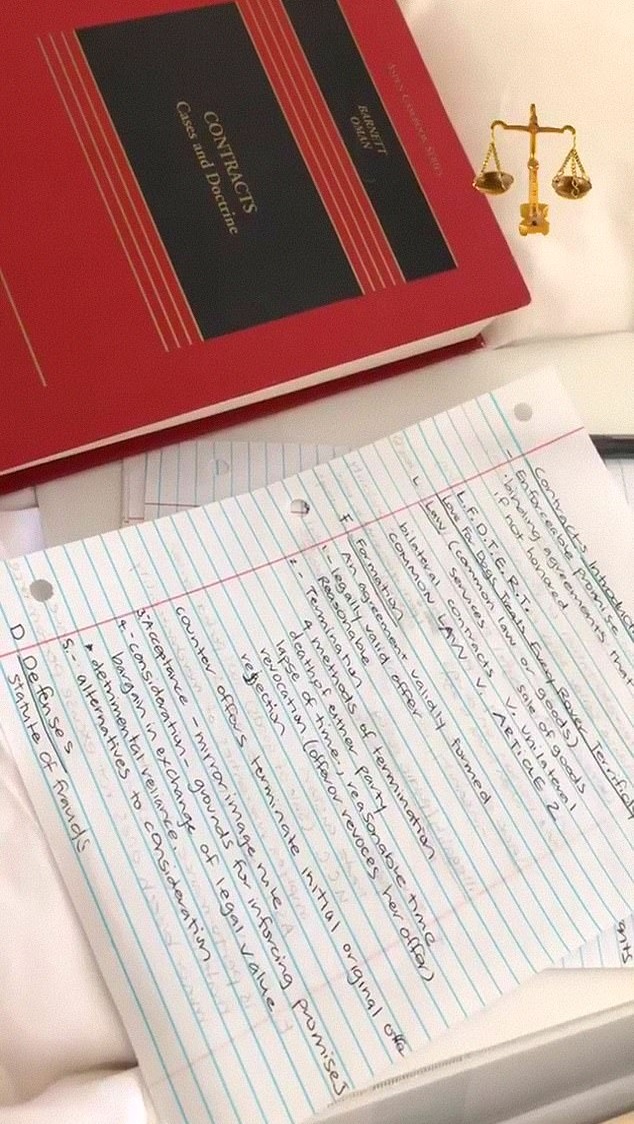 ASPEN CASEBOOK SERIES
BARNETT
OMAN
CONTRACTS
Cases and Doctrine
Contracts
- Enforceable promises
binding agreements that
if not honored
L.F.D.T.E.R.T.
Love For Dogs Treats Every Rover Terrifical
L Law (common law or goods)
services v. sale of goods
bilateral contracts v. unilateral
COMMON LAW v. ARTICLE 2
F Formation
- An agreement validly formed
1. - legally valid offer
Reasonable
2. - Termination
4 methods of termination
death of either party
lapse of time, reasonable time
revocation (offeror revoces her offer)
rejection
counter offers terminate initial original
3. Acceptance - mirror image rule
4. - consideration - grounds for inforcing promises
bargain in exchange of legal value
detrimental reliance.
5. - alternatives to consideration
D Defenses
statute of frauds